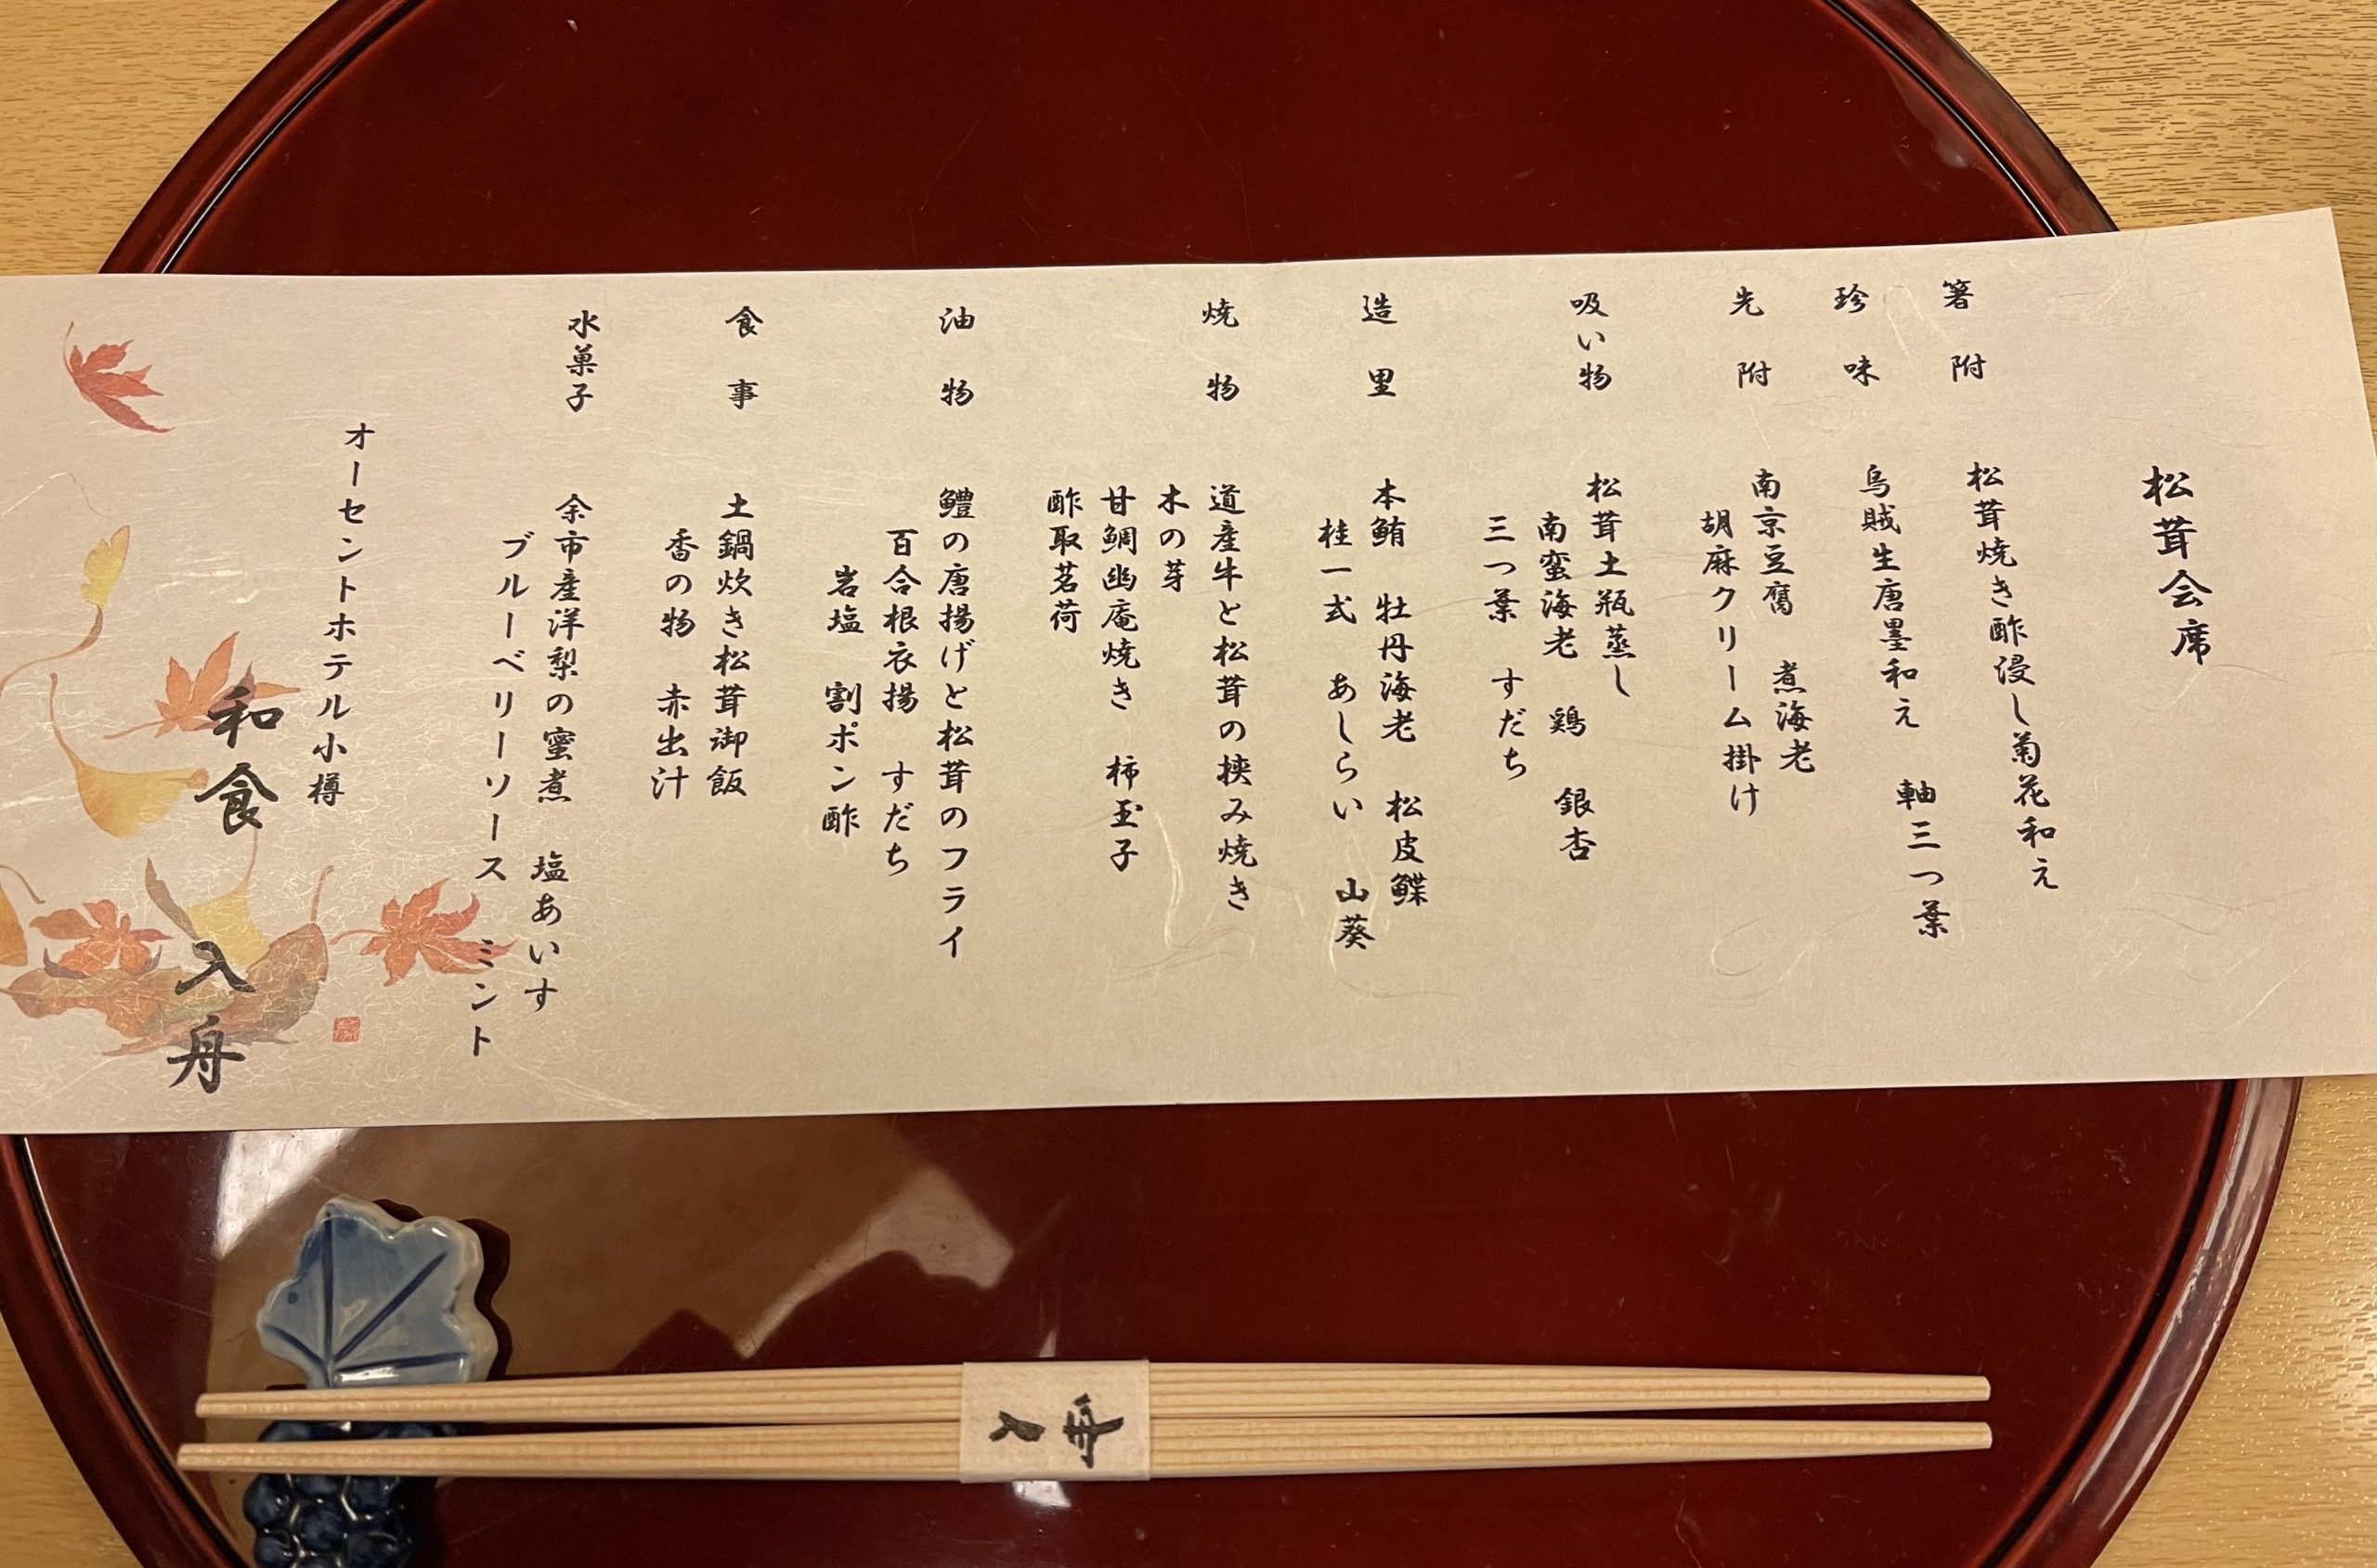 松茸会席
箸附
松茸焼き酢浸し菊花和え
珍味
烏賊生唐墨和え　軸三つ葉
先附
南京豆腐　煮海老
胡麻クリーム掛け
吸い物
松茸土瓶蒸し
南蛮海老　鶏　銀杏
三つ葉　すだち
造里
本鮪　牡丹海老　松皮鰈
桂一式　あしらい　山葵
焼物
道産牛と松茸の挟み焼き
木の芽
甘鯛幽庵焼き　柿玉子
酢取茗荷
油物
鱧の唐揚げと松茸のフライ
百合根衣揚　すだち
岩塩　割ポン酢
食事
土鍋炊き松茸御飯
香の物　赤出汁
水菓子
余市産洋梨の蜜煮　塩あいす
ブルーベリーソース　ミント
オーセントホテル小樽
和食　入舟